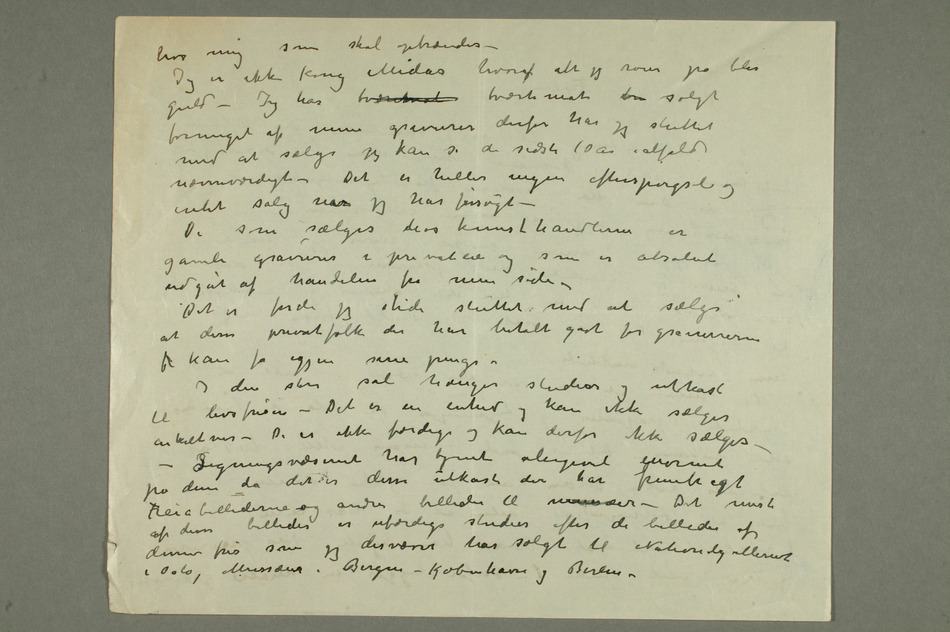 hos mig som skal opbrændes –
Jeg er ikke Kong Midas hvoraf alt jeg rører på blir
guld – Jeg har tværtimot tværtimot solgt
formeget af mine gravurer derfor har jeg sluttet
med at sælge jeg kan si de sidste 10 år ialfald
nævneværdigt – Det er heller ingen efterspørgsel og
intet salg når jeg har forsøgt –
De som sælges hos kunsthandlerne er
gamle gravurer i privateie og som er absolut
udgåt af handelen fra min side –
Det er fordi jeg sluttet med at sælge
at disse privatfolk der har betalt godt for gravurerne
kan få igjen sine penge –
I den store sal hænger studier og utkast
til livsfrisen – Det er en enhed og kan ikke sælges
enkeltvis – De er ikke færdige og kan derfor ikke sælges –
– Ligningsvæsenet har tjent alligevel enormt
på dem da det er disse utkast der har frembragt
Freiabillederne og andre billeder til – Det meste
af disse billeder er uferdige studier efter de billeder af
denne frise som jeg desværre har solgt til Nationalgalleriet
i Oslo, Museum i Bergen – København og Berlin –